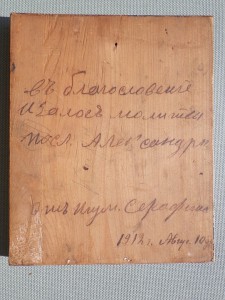 въ благословенiе
и залогъ молитвы
посл. Александры
отъ Игум. Серафима
1912 г. Авг. 10